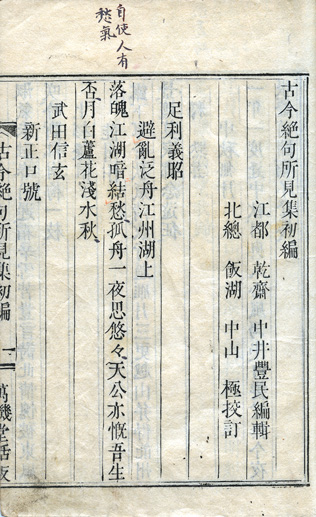 自使人有
愁氣
古今絶句所見集初編
江都 乾齋 中井豐民編輯
北總 飯湖 中山 極挍訂
足利義昭
避亂泛舟江州湖上
落魄江湖暗結愁孤舟一夜思悠々天公亦慨吾生
否月白蘆花淺水秋
武田信玄
新正口號
古今絶句所見集初編 一 萬機堂活板